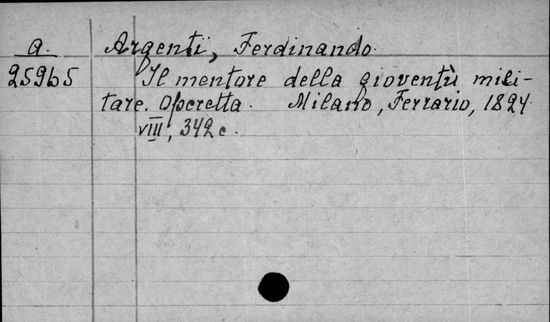 a. Argenti, Ferdinando.
25965 Il mentore della gioventù mili-
tare. Operetta. Milano, Ferrario, 1824.
VIII, 342 c.